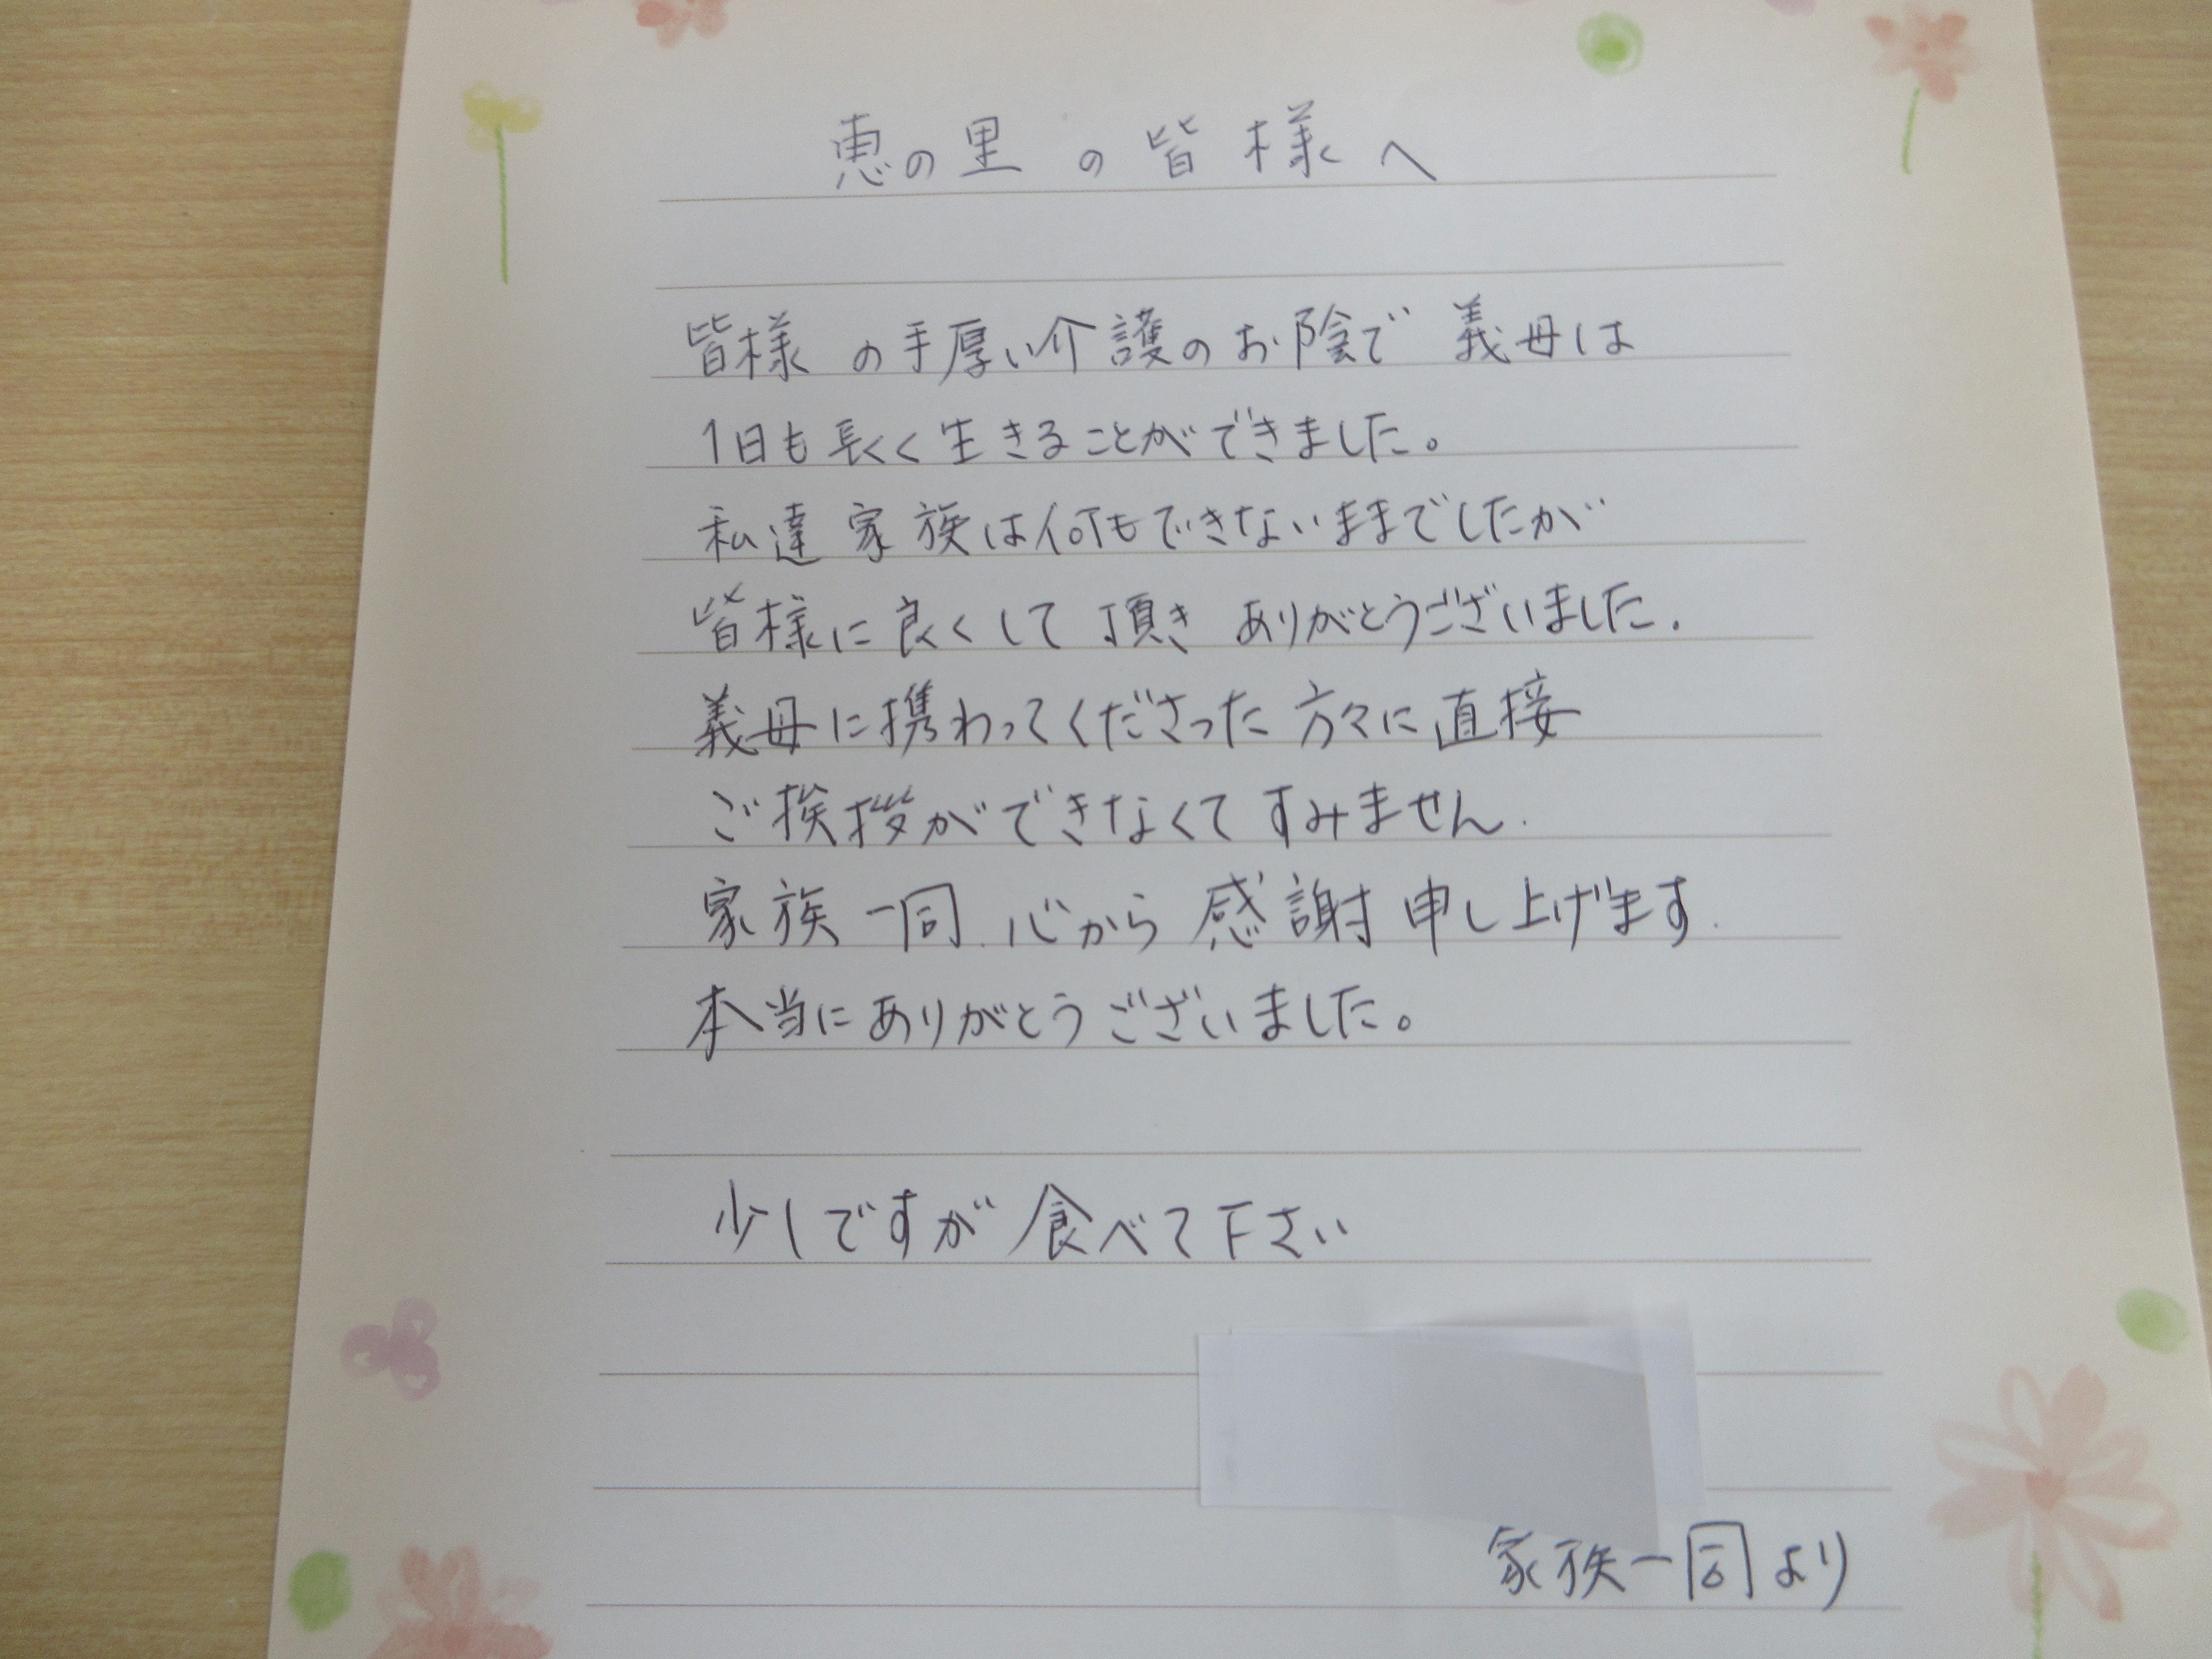 恵の里の皆様へ
皆様の手厚い介護のお陰で義母は
1日も長く生きることができました。
私達家族は何もできないままでしたが
皆様に良くして頂きありがとうございました.
義母に携わってくださった方々に直接
ご挨拶ができなくてすみません.
家族一同.心から感謝申し上げます.
本当にありがとうございました。
少しですが食べて下さい
家族一同より